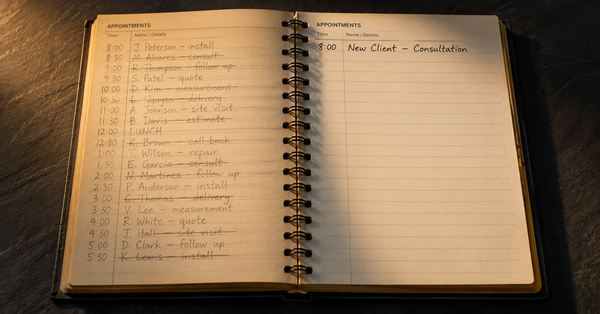 APPOINTMENTS
Time Name / Details
8:00 J. Peterson – install
8:30 M. Alvarez – consult
9:00 R. Thompson – follow up
9:30 S. Patel – quote
10:00 D. Kim – measurement
10:30 L. Nguyen – delivery
11:00 A. Johnson – site visit
11:30 B. Davis – estimate
12:00 LUNCH
12:30 K. Brown – call back
1:00 T. Wilson – repair
1:30 E. Garcia – consult
2:00 N. Martinez – follow up
2:30 P. Anderson – install
3:00 C. Thomas – delivery
3:30 V. Lee – measurement
4:00 R. White – quote
4:30 J. Hall – site visit
5:00 D. Clark – follow up
5:30 K. Lewis – install
APPOINTMENTS
Time Name / Details
8:00 New Client – Consultation